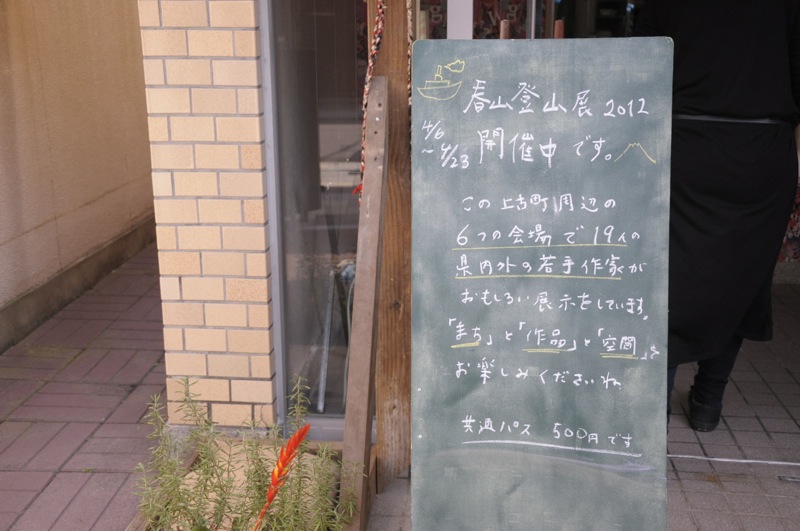 春山登山展 2012
4/6
~4/23
開催中です。
この上古町周辺の
6つの会場で19人の
県内外の若手作家が
おもしろい展示をしています。
「まち」と「作品」と「空間」を
お楽しみくださいね
共通パス 500円です